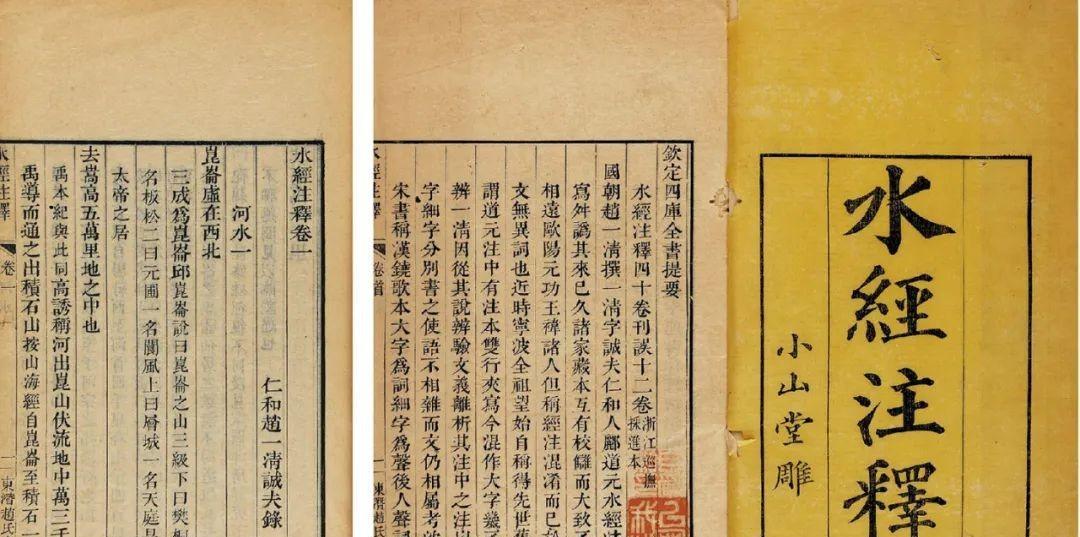 水經注釋
小山堂雕
欽定四庫全書提要
水經注釋四十卷刊誤十二卷浙江巡撫
採進本
國朝趙一清撰一清字誠夫仁和人酈道元水經
寫舛譌其來已久諸家藏本互有校讎而大致
相遠歐陽元功王禕諸人但稱經注混淆而已
文無異詞也近時寧波全祖望始自稱得先世
謂道元注中有注本雙行夾寫今混作大字
辨一清因從其說辨驗文義離析其注中之注
字細字分別書之使語不相雜而文仍相屬考
宋書稱漢鐃歌本大字為詞細字為聲後人聲
水經注釋
卷首
東潛趙氏
水經注釋卷一
仁和趙一清誠夫錄
河水一
崑崙虛在西北
三成爲崑崙邱崑崙說曰崑崙之山三級下曰樊桐
名板松二曰元圃一名閬風上曰層城一名天庭
太帝之居
去嵩高五萬里地之中也
禹本紀與此同高誘稱河出崑山伏流地中萬三千
禹導而通之出積石山按山海經自崑崙至積石
水經注釋
卷一
一
東潛趙氏